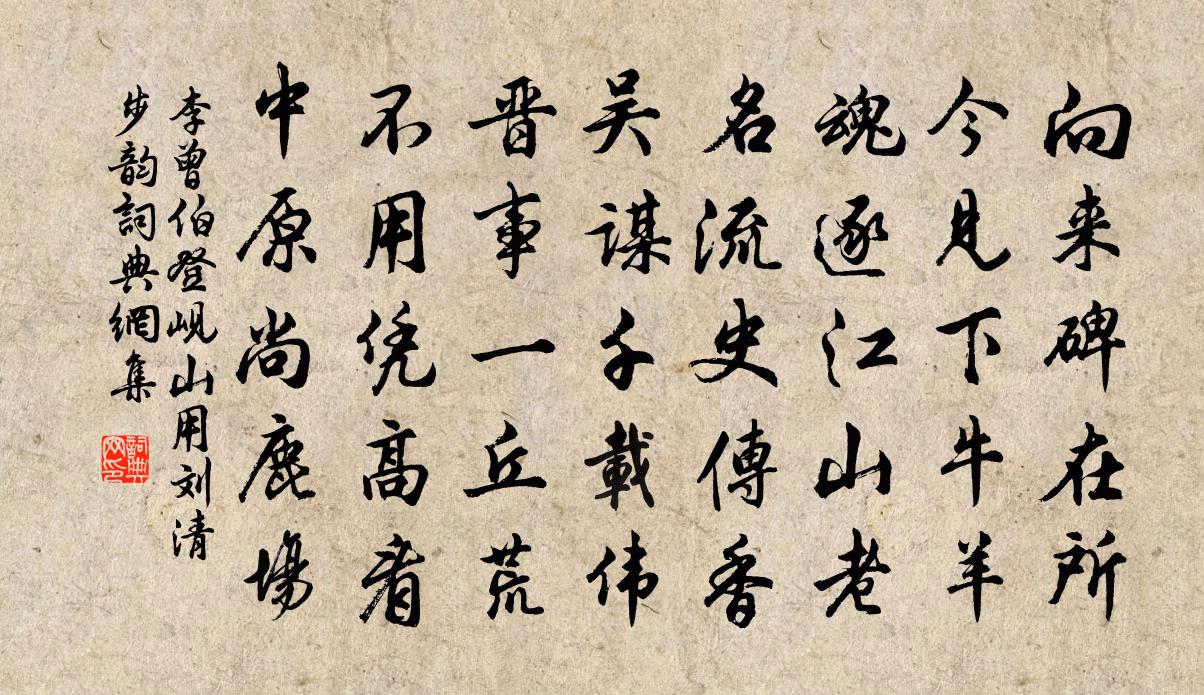 向来碑在所
今见下牛羊
魂逐江山老
名流史傳香
吴谋千載伟
晋事一丘荒
不用凭高看
中原尚鹿場
李曾伯登岘山用刘清
步韵詞典網集
詞典網印